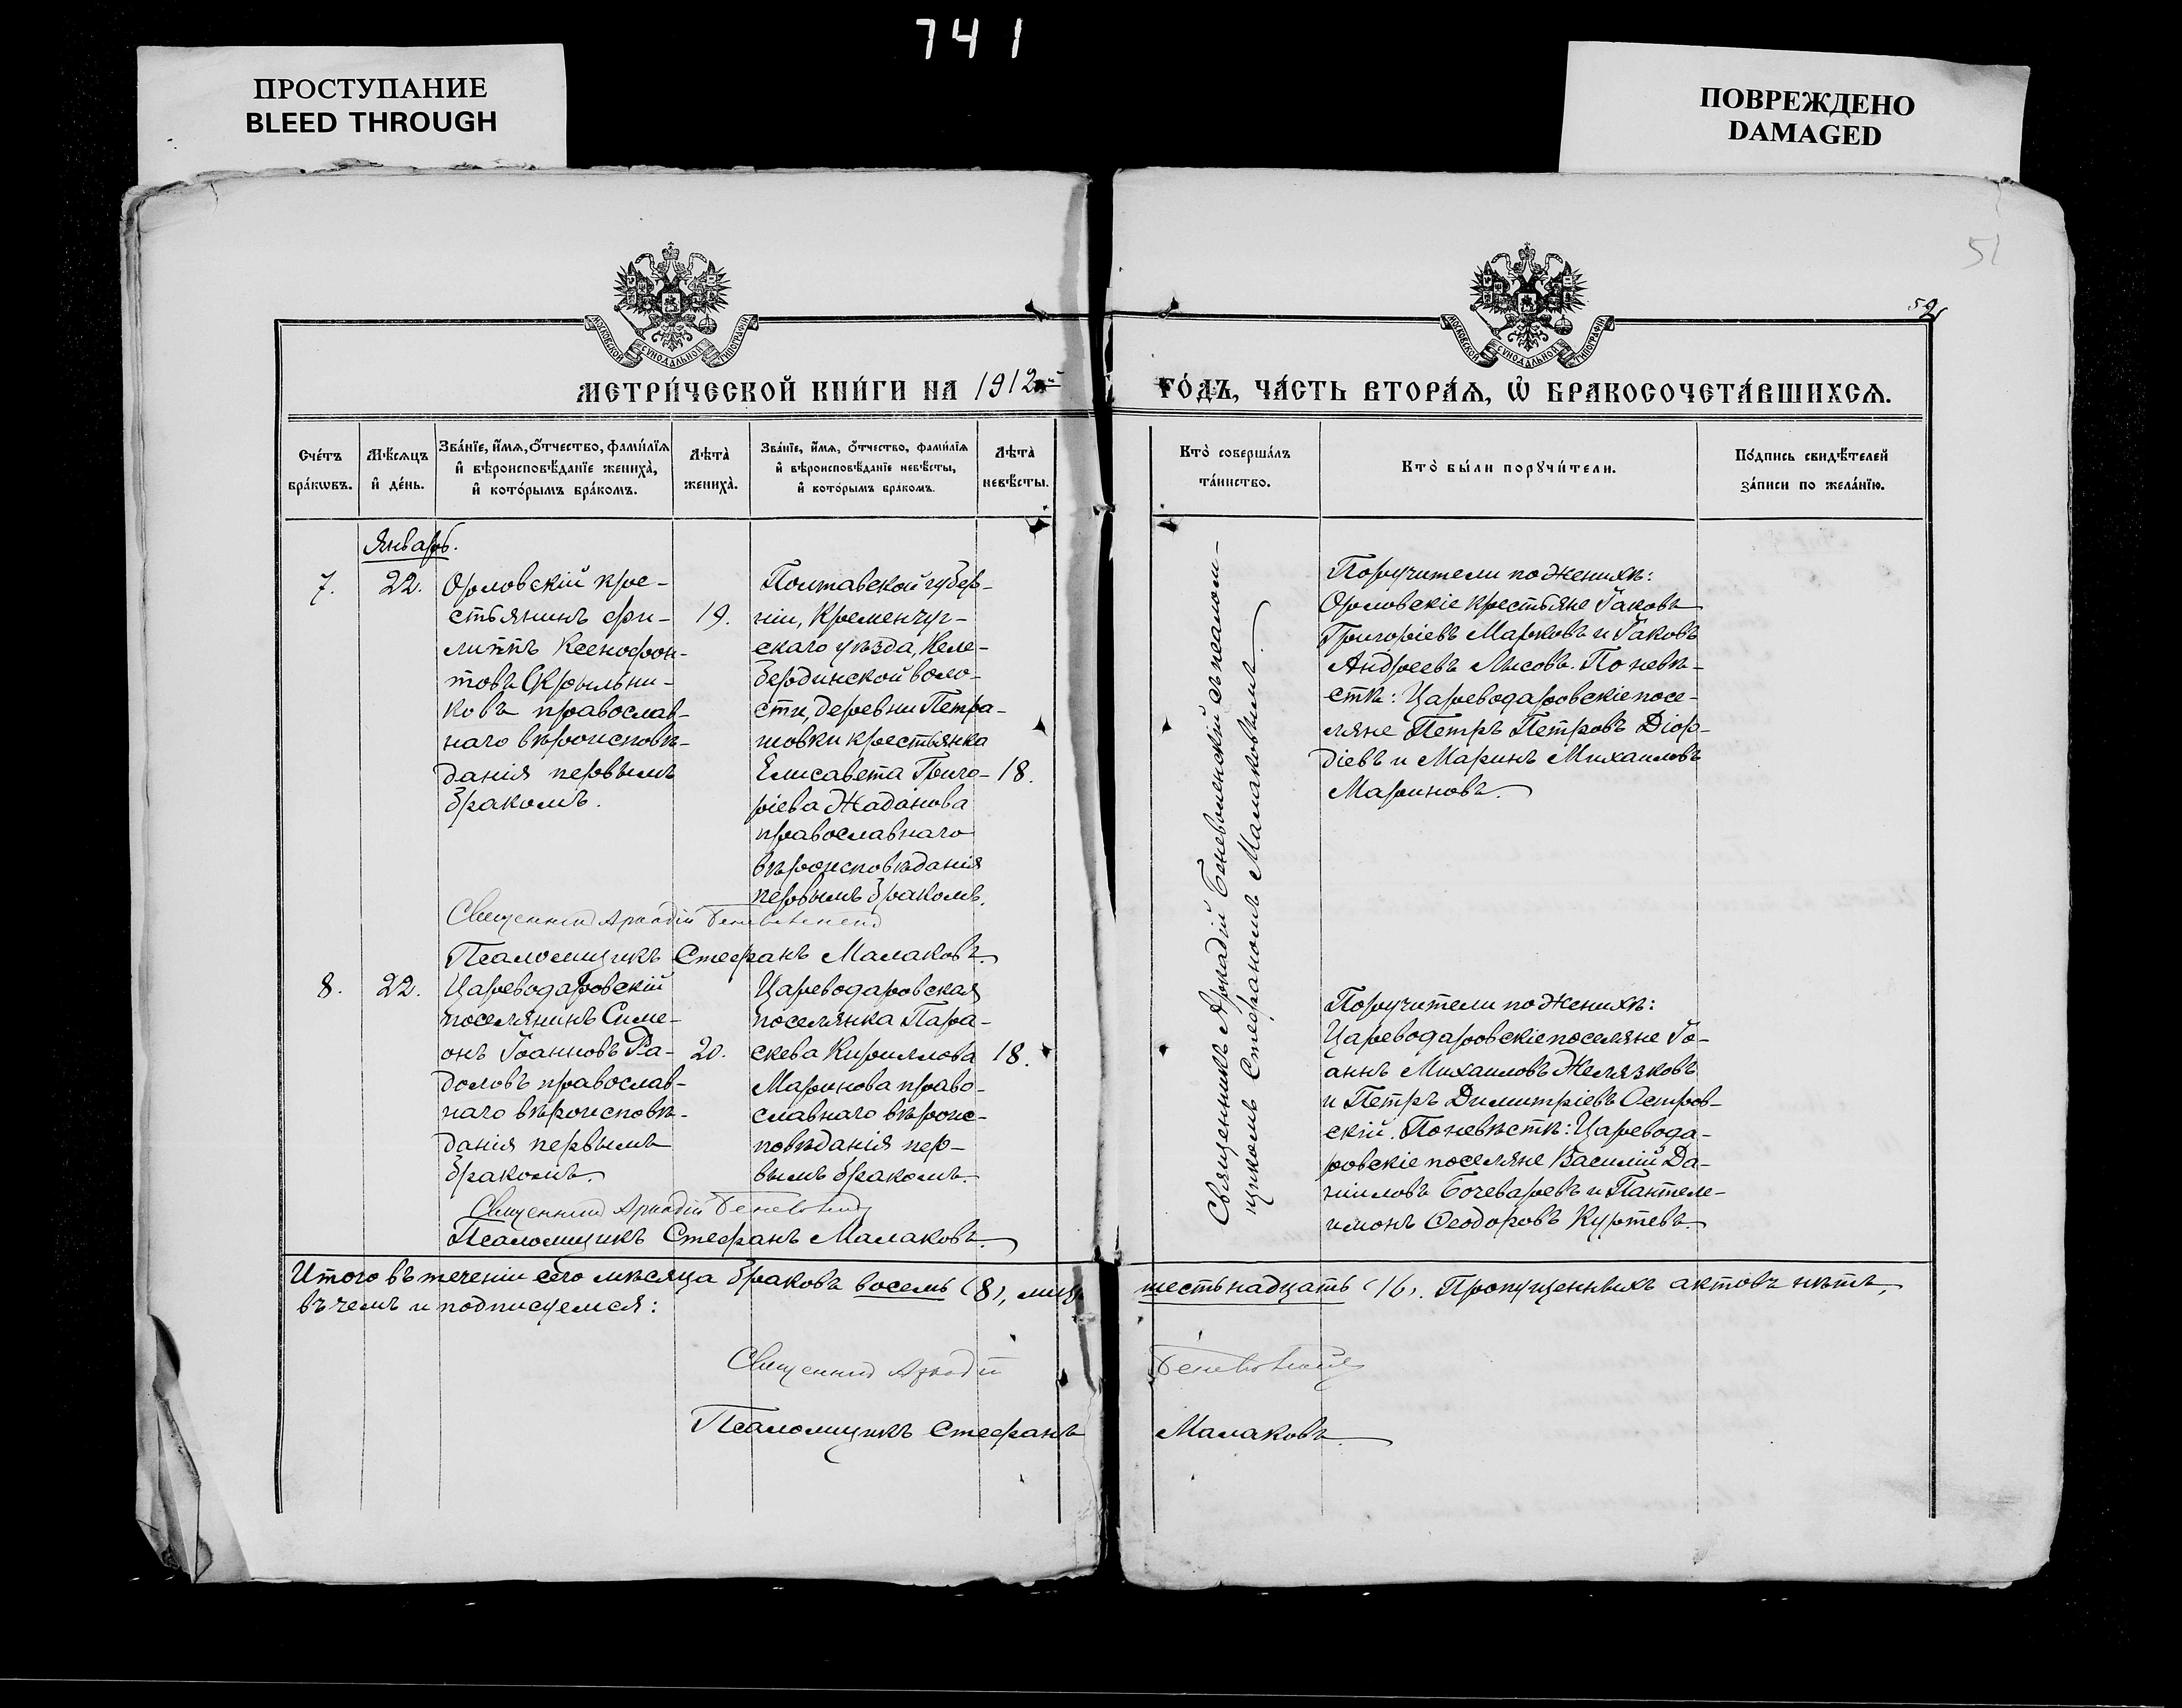 741
ПРОСТУПАНИЕ
BLEED THROUGH
ПОВРЕЖДЕНО
DAMAGED
51
52
МОСКОВСКОЙ СУНОДАЛЬНОЙ ТИПОГРАФІИ
МОСКОВСКОЙ СУНОДАЛЬНОЙ ТИПОГРАФІИ
МЕТРИ́ЧЕСКОЙ КНИ́ГИ НА 1912й
ГО́ДЪ, ЧА́СТЬ ВТОРА́Ѧ, Ѽ БРАКОСОЧЕТА́ВШИХСѦ.
Сче́тъ
бра́кѡвъ.
Мѣ́сѧцъ
и҆ де́нь.
Зва́нїе, и҆́мѧ, ѻ҆́тчество, фами́лїѧ
и҆ вѣроисповѣ́данїе жениха̀,
и҆ кото́рымъ бра́комъ.
Лѣта̀
жениха̀.
Зва́нїе, и҆́мѧ, ѻ҆́тчество, фами́лїѧ
и҆ вѣроисповѣ́данїе невѣ́сты,
и҆ кото́рымъ бра́комъ.
Лѣта̀
невѣ́сты.
Кто̀ соверша́лъ
та́инство.
Кто̀ бы́ли порꙋчи́тели.
По́дпись свидѣ́телей
за́писи по жела́нїю.
Январь.
7.
22.
Орловскій кре-
стьянинъ Фи-
липпъ Ксенофон-
товъ Скрыльни-
ковъ православ-
наго вѣроисповѣ-
данія первымъ
бракомъ.
19.
Полтавской губер-
ніи, Кременчуг-
скаго уѣзда, Келе-
бердинской воло-
сти, деревни Петра-
шовки крестьянка
Елисавета Григо-
ріева Жаданова
православнаго
вѣроисповѣданія
первымъ бракомъ.
18.
Священникъ Аркадій Беневоленскій
Псаломщикъ Стефанъ Малаковъ.
Поручители по женихѣ:
Орловскіе крестьяне Іаковъ
Григоріевъ Марковъ и Іаковъ
Андреевъ Лысовъ. По невѣ-
стѣ: Цареводаровскіе посе-
ляне Петръ Петровъ Діор-
діевъ и Маринъ Михаиловъ
Мариновъ.
Священникъ Аркадій Беневоленскій съ псалом-
щикомъ Стефаномъ Малаковымъ.
8.
22.
Цареводаровскій
поселянинъ Симе-
онъ Іоанновъ Ра-
доловъ православ-
наго вѣроисповѣ-
данія первымъ
бракомъ.
20.
Цареводаровская
поселянка Пара-
скева Кириллова
Маринова право-
славнаго вѣроис-
повѣданія пер-
вымъ бракомъ.
18.
Священникъ Аркадій Беневоленскій
Псаломщикъ Стефанъ Малаковъ.
Поручители по женихѣ:
Цареводаровскіе поселяне Іо-
аннъ Михаиловъ Желязковъ
и Петръ Димитріевъ Остров-
скій. По невѣстѣ: Царевода-
ровскіе поселяне Василій Да-
ніиловъ Бочеваревъ и Пантеле-
имонъ Ѳеодоровъ Куртевъ.
Итого въ теченіи сего мѣсяца браковъ восемь (8), лицъ шестьнадцать (16). Пропущенныхъ актовъ нѣтъ,
въ чемъ и подписуемся:
Священникъ Аркадій Беневоленскій
Псаломщикъ Стефанъ Малаковъ.